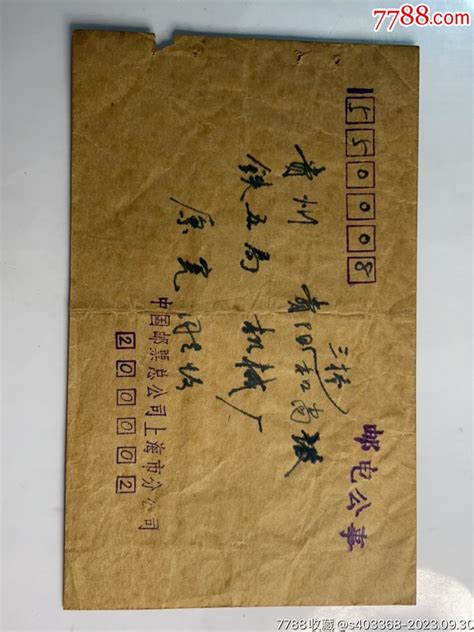 7788.com
550008
贵州 贵阳 三桥
铁五局 机械厂
邮电公事
中国邮票总公司上海市分公司
200002
7788收藏@s403368-2023.09.30